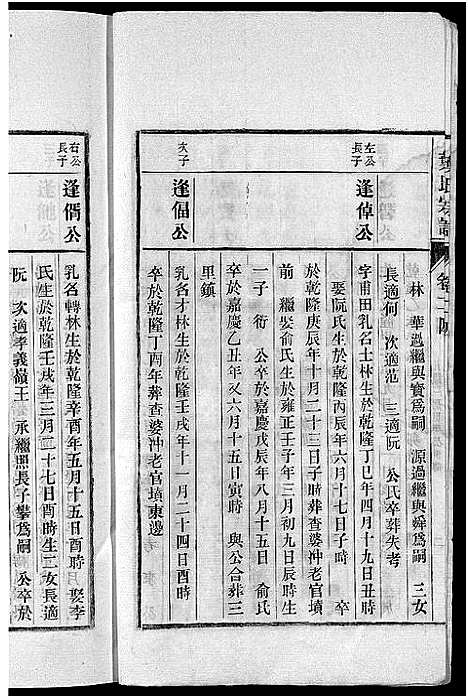 林 華過繼與實爲嗣 源過繼與舜爲嗣 三女
長適何 次適范 三適阮 公氏卒葬失考
左公長子
逢倬公
字甫田乳名士林生於乾隆丁巳年四月十九日丑時
娶阮氏生於乾隆丙辰年六月十七日子時 卒
於乾隆庚辰年十月二十三日子時葬查婆沖老官墳
前 繼娶俞氏生於雍正壬子年三月初九日辰時生
一子 衍 公卒於嘉慶戊辰年八月十五日 俞氏
卒於嘉慶乙丑年又六月十五日寅時 與公合葬三
里鎮
次子
逢偪公
乳名才林生於乾隆壬戌年十一月二十四日酉時
卒於乾隆丁酉年葬查婆沖老官墳東邊
右公長子
逢偦公
乳名轉林生於乾隆辛酉年五月十五日酉時 娶李
氏生於乾隆壬戌年三月二十七日酉時生二女長適
阮 次適孝義嶺王 承繼照長子攀爲嗣 公卒於